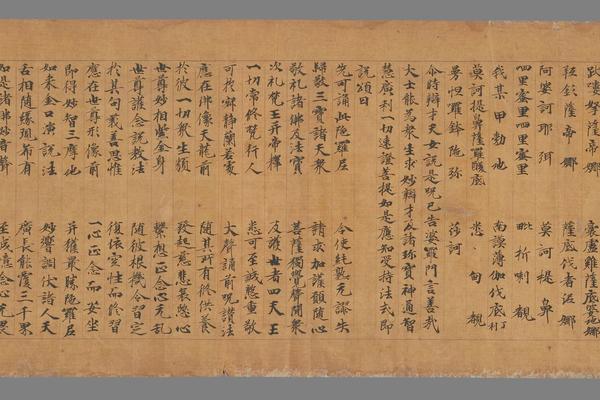 阿婆訶耶弭　莫訶提鼻
呬里蜜里呬里蜜里　毗折喇覩
我某甲勃地　南謨薄伽伐底
莫訶提鼻薩羅酸底　悉甸覩
曼怛羅鉢陁弥　莎訶
尒時辯才天女說是呪已告婆羅門言善哉
大士能為眾生求妙辯才及諸珍寶神通智
慧廣利一切速證菩提如是應知受持法式即
說頌曰
先可誦此陁羅尼　令使純熟无謬失
歸敬三寶諸天眾　請求加護願隨心
敬礼諸佛及法寶　菩薩獨覺聲聞眾
次礼梵王并帝釋　及護世者四天王
一切常修梵行人　悉可至誠慇重敬
可於寂靜蘭若處　大聲誦前呪讚法
應在佛像天龍前　隨其所有修供養
於彼一切眾生類　發起慈悲哀愍心
世尊妙相紫金身　繫想正念心无亂
世尊護念說教法　隨彼根機令習定
於其句義善思惟　復依空性而修習
應在世尊形像前　一心正念而安坐
即得妙智三摩地　并獲最勝陁羅尼
如來金口演說法　妙響調伏諸人天
舌相隨緣現希有　廣長能覆三千界
如是諸佛妙音聲　至誠憶念心无畏